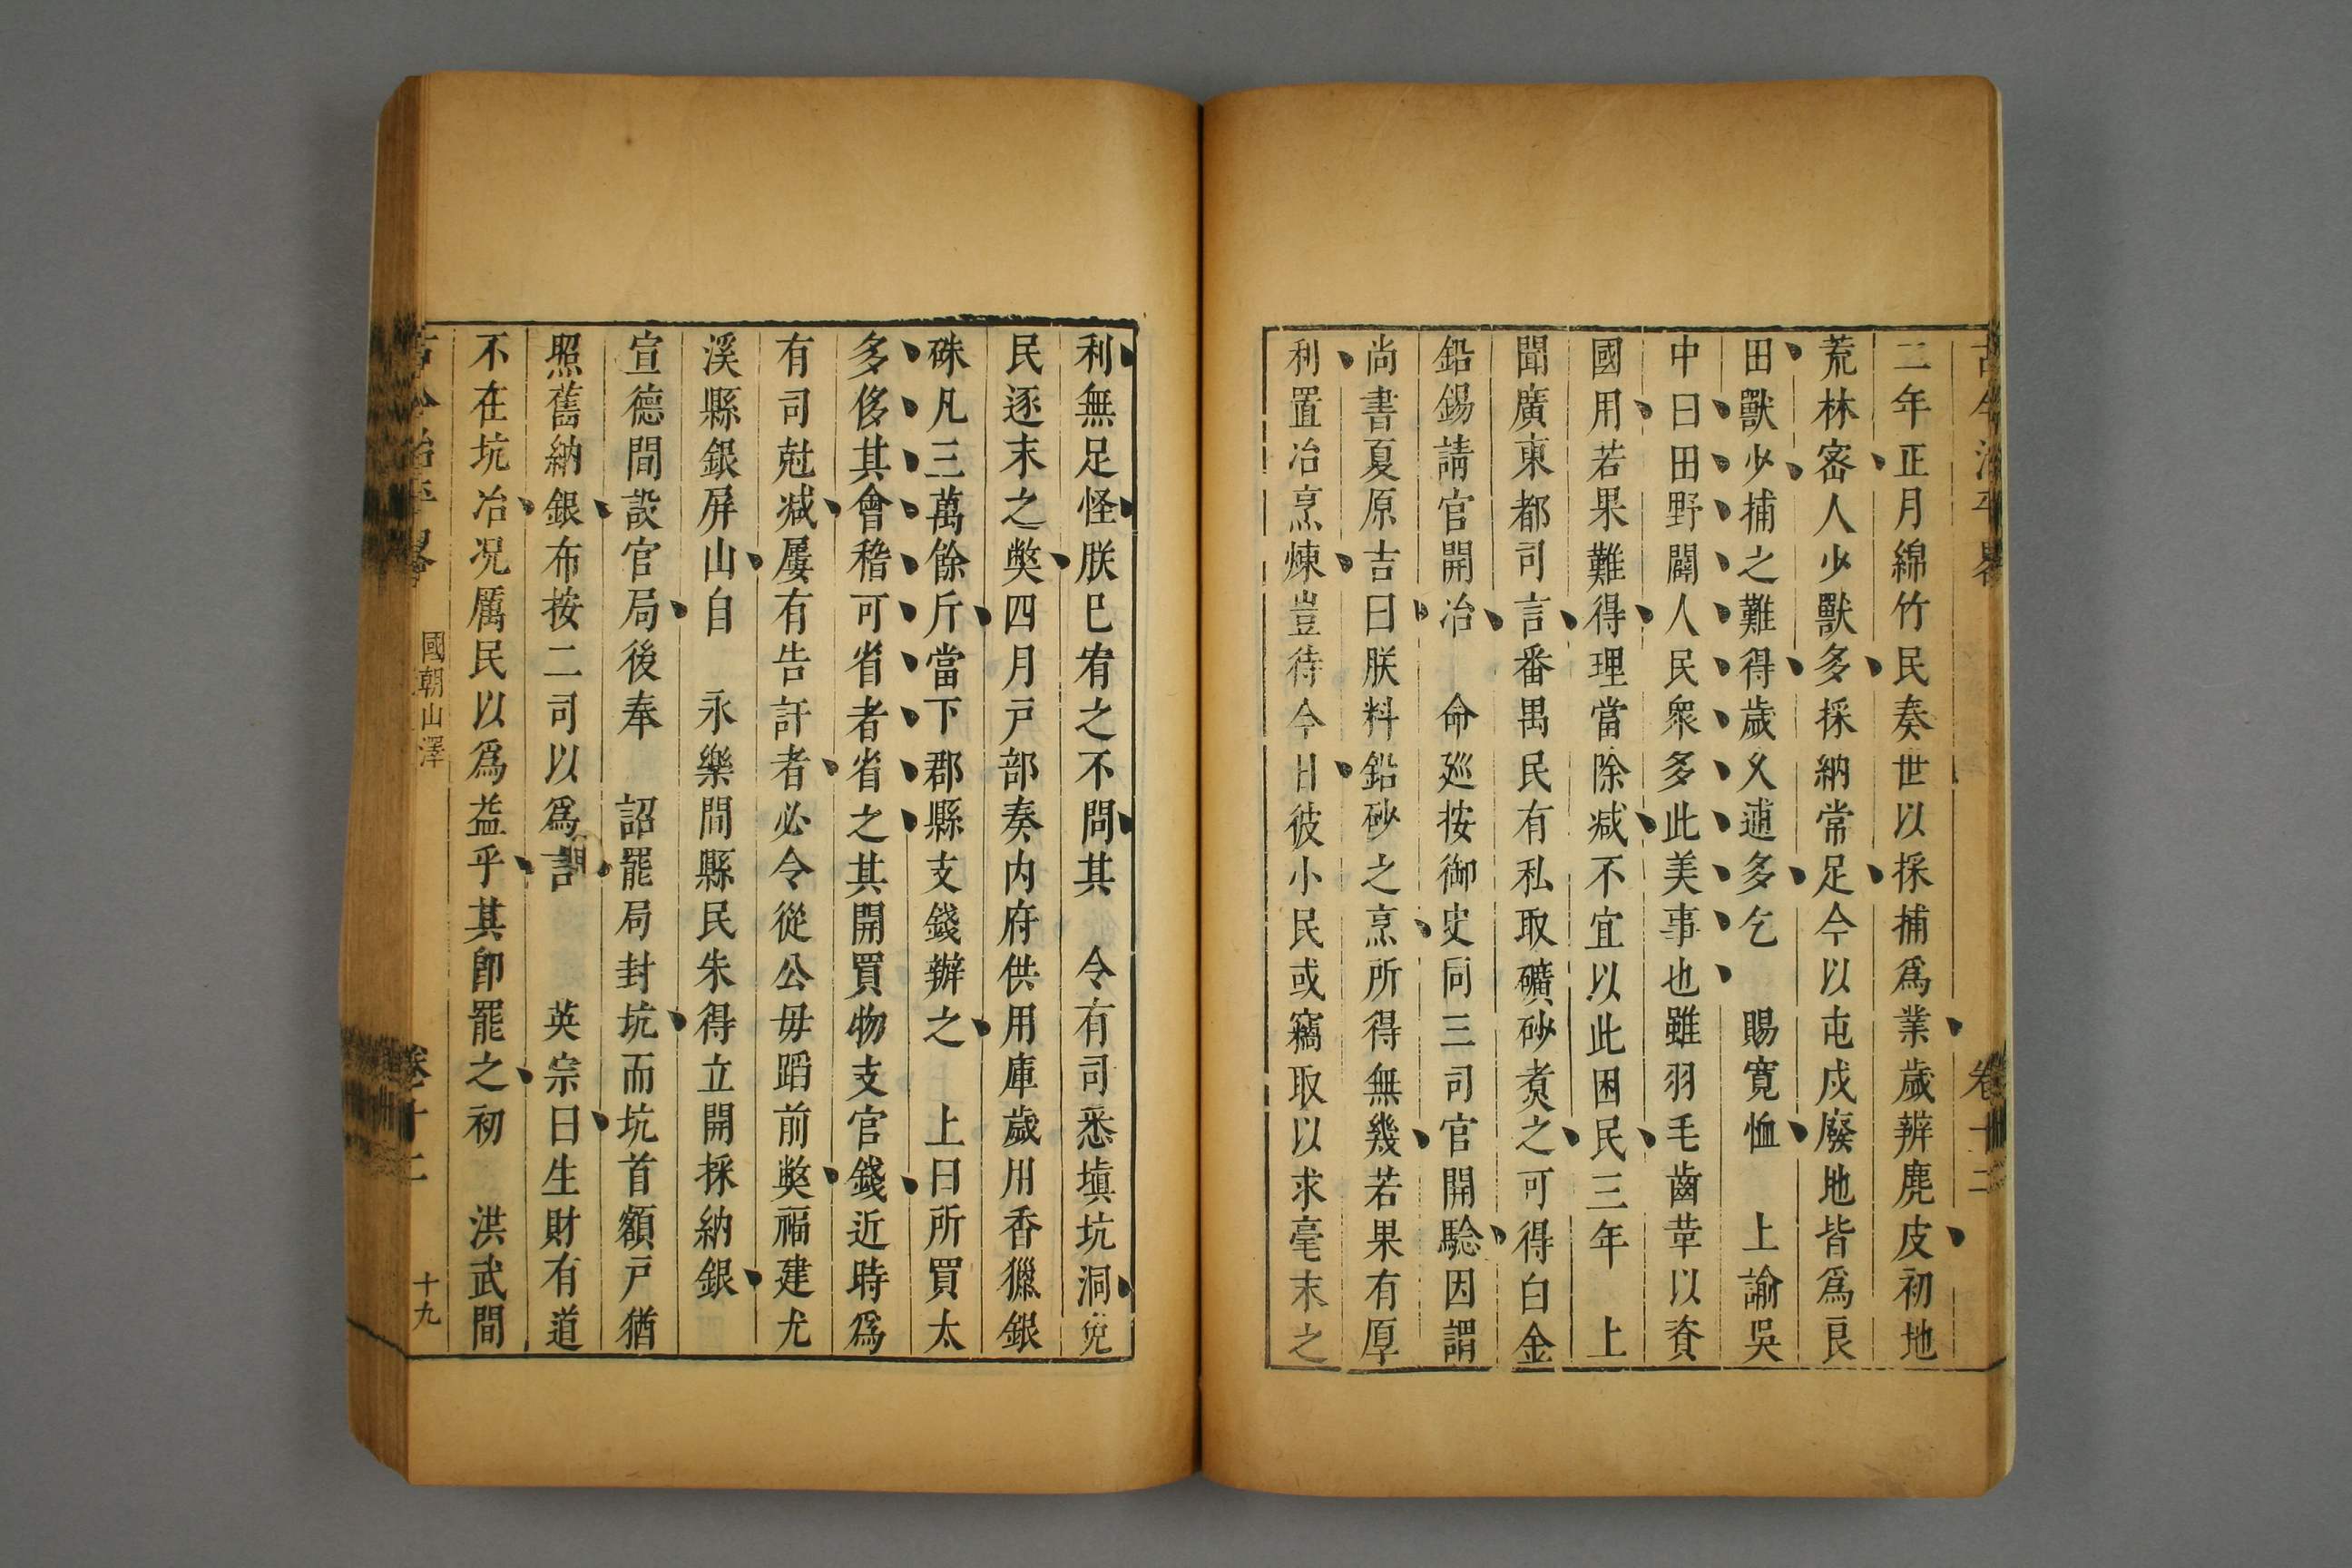 古今治平畧
卷十二
二年正月綿竹民奏世以採捕爲業歲辨麂皮初地
荒林密人少獸多採納常足今以屯戍廢地皆爲良
田獸少捕之難得歲久逋多乞 賜寬恤 上諭吳
中曰田野闢人民衆多此美事也雖羽毛齒革以資
國用若果難得理當除减不宜以此困民三年 上
聞廣東都司言番禺民有私取礦砂煑之可得白金
鉛錫請官開冶 命廵按御史同三司官開騐因謂
尚書夏原吉曰朕料鉛砂之烹所得無幾若果有厚
利置冶烹煉豈待今日彼小民或竊取以求毫末之
利無足怪朕巳宥之不問其 令有司悉塡坑洞免
民逐末之獘四月戸部奏内府供用庫歲用香獵銀
硃凡三萬餘斤當下郡縣支錢辦之 上曰所買太
多侈其會稽可省者省之其開買物支官錢近時爲
有司尅减屢有告訐者必令從公毋蹈前獘福建尤
溪縣銀屏山自 永樂間縣民朱得立開採納銀
宣德間設官局後奉 詔罷局封坑而坑首額戸猶
照舊納銀布按二司以爲言 英宗曰生財有道
不在坑冶况厲民以爲益乎其卽罷之初 洪武間
古今治平畧
國朝山澤
卷十二
十九